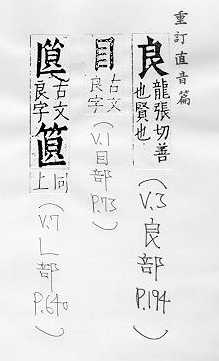 重訂直音篇
良 龍張切善也賢也(V.3良部P.194)
古文良字(V.1目部P.73)
古文良字 同上(V.7乚部P.640)